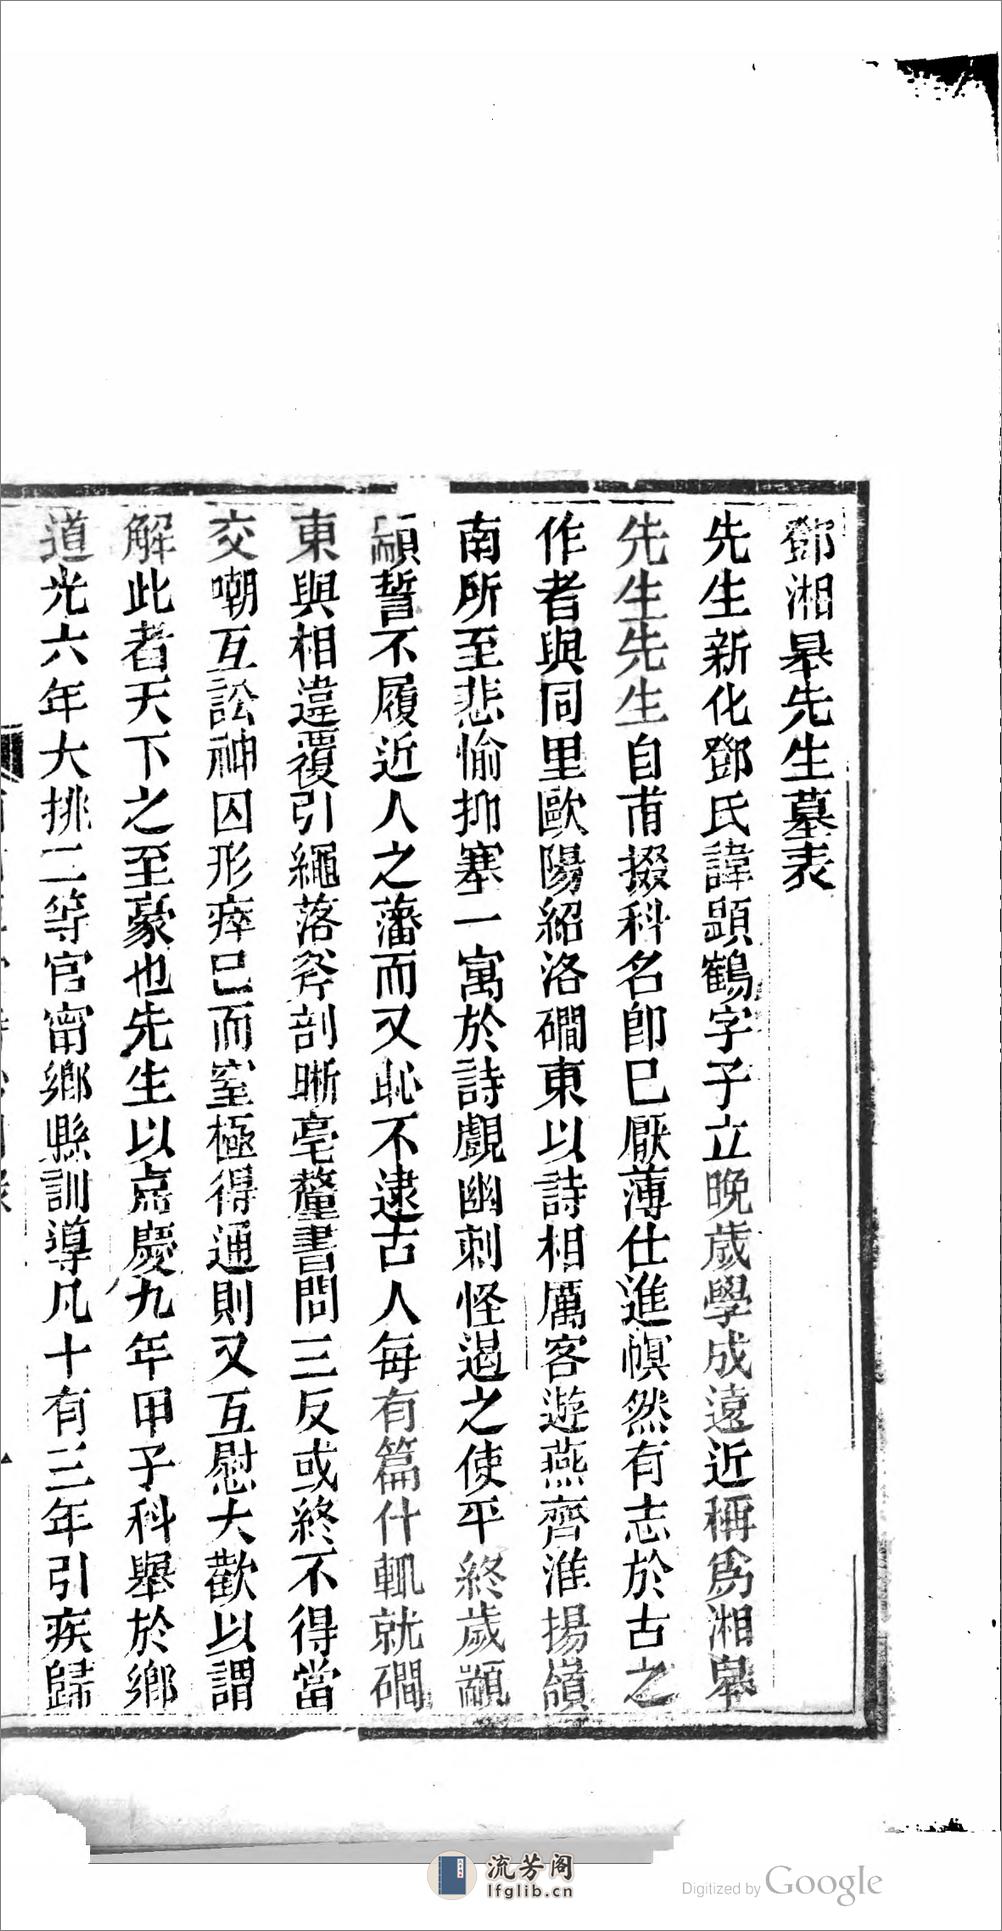 鄧湘皋先生墓表
先生新化鄧氏諱顯鶴字子立晚歲學成遠近稱爲湘皋
先生先生自甫掇科名卽已厭薄仕進愼然有志於古之
作者與同里歐陽紹洛磵東以詩相厲客遊燕齊淮揚嶺
南所至悲愉抑塞一寓於詩覷幽刺怪遏之使平終歲顓
顓誓不履近人之藩而又恥不逮古人每有篇什輒就磵
東與相違覆引繩落斧剖晰毫釐書問三反或終不得當
交嘲互訟神囚形瘁已而窒極得通則又互慰大歡以謂
解此者天下之至豪也先生以嘉慶九年甲子科舉於鄉
道光六年大挑二等官甯鄉縣訓導凡十有三年引疾歸
流芳閣
lfglib.cn
Digitized by Google